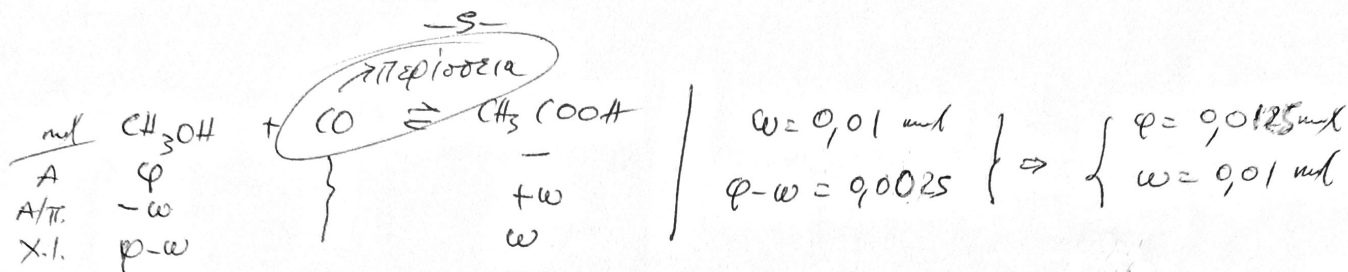 -5-
περίσσεια
mol CH₃OH + CO ⇌ CH₃COOH
A φ -
A/π. -ω +ω
Χ.Ι. φ-ω ω
ω = 0,01 mol
φ-ω = 0,0025
⇒
φ = 0,0125 mol
ω = 0,01 mol